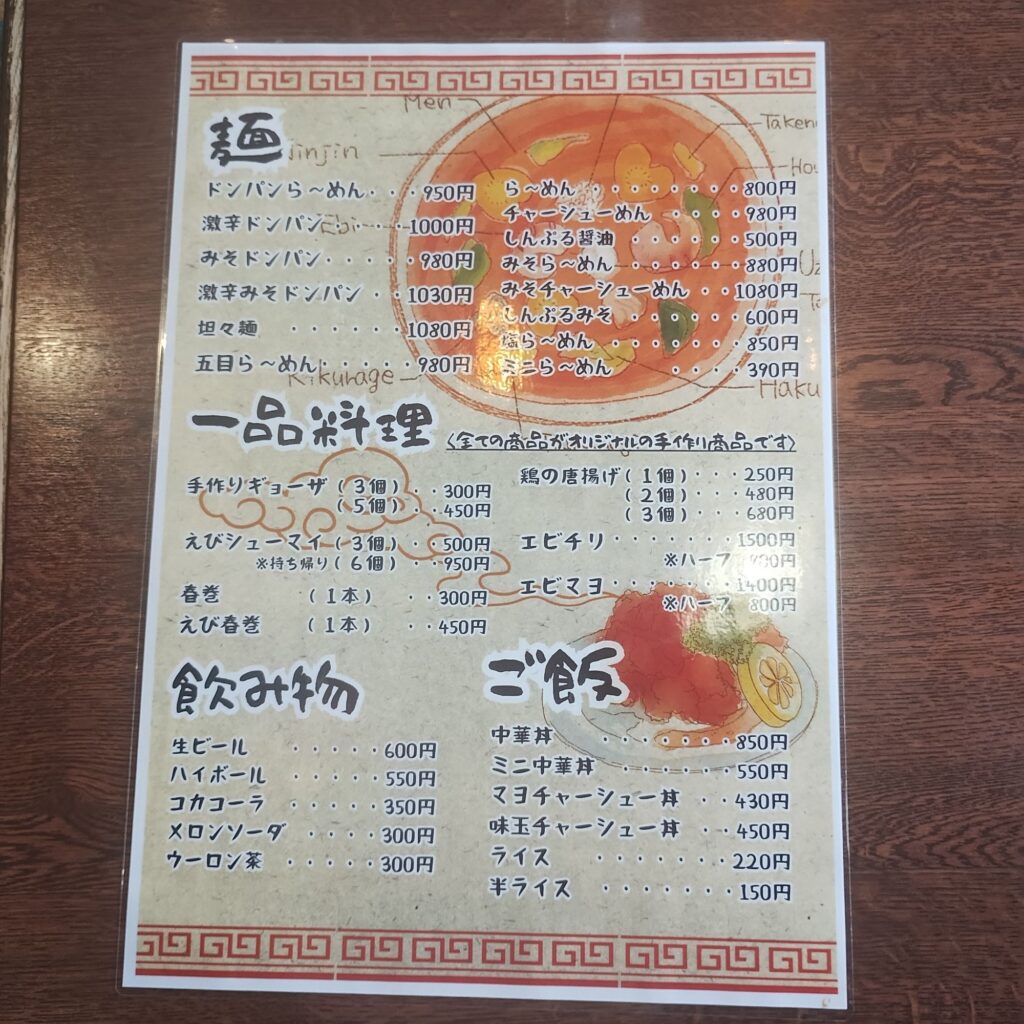 麺
ドンパンら〜めん・・・950円
激辛ドンパン・・・・・1000円
みそドンパン・・・・・980円
激辛みそドンパン・・1030円
坦々麺・・・・・・1080円
五目ら〜めん・・・・・980円
ら〜めん・・・・・・・・800円
チャーシューめん・・・・980円
しんぷる醤油・・・・・・500円
みそら〜めん・・・・・・880円
みそチャーシューめん・・1080円
しんぷるみそ・・・・・・600円
塩ら〜めん・・・・・・・850円
ミニら〜めん・・・・390円
Men
Ninjin
Ebi
Kikurage
一品料理
〈全ての商品がオリジナルの手作り商品です〉
手作りギョーザ(3個)・・300円
(5個)・・450円
えびシューマイ(3個)・・500円
※持ち帰り(6個)・・950円
春巻(1本)・・300円
えび春巻(1本)・・450円
鶏の唐揚げ(1個)・・・250円
(2個)・・・480円
(3個)・・・680円
エビチリ・・・・・・・1500円
※ハーフ 円
エビマヨ・・・・・・・1400円
※ハーフ 800円
飲み物
生ビール・・・・・600円
ハイボール・・・・・550円
コカコーラ・・・・・350円
メロンソーダ・・・・300円
ウーロン茶・・・・・300円
ご飯
中華丼・・・・・・・850円
ミニ中華丼・・・・・・550円
マヨチャーシュー丼・・430円
味玉チャーシュー丼・・450円
ライス・・・・・・・220円
半ライス・・・・・・・150円